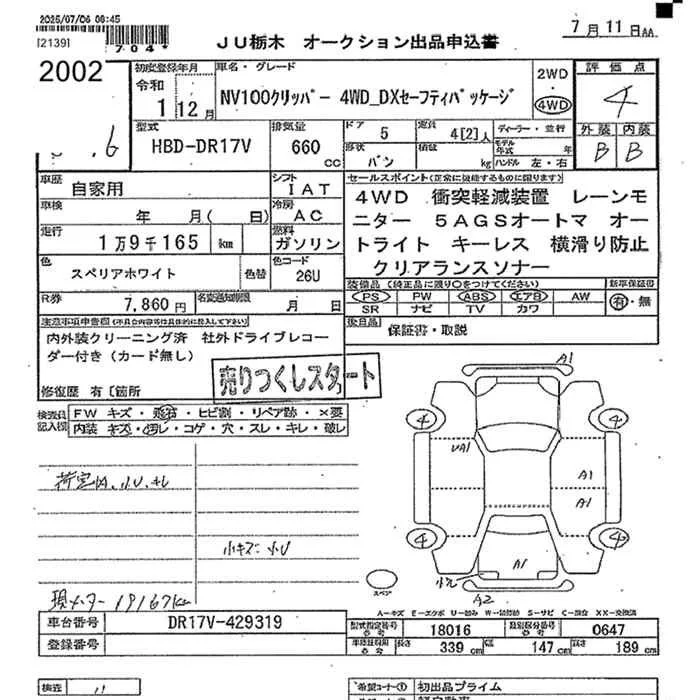 2025/07/06 08:45
[2139]
704*
ＪＵ栃木 オークション出品申込書
7月11日AA
2002
初度登録年月
令和
1 12月
車名・グレード
NV100クリッパー 4WD_DXセーフティパッケージ
2WD
・
4WD
評価点
4
型式
HBD-DR17V
排気量
660
cc
ドア
5
定員
4[2]人
形状
バン
積載
kg
ディーラー・並行
モデル年式 年
ハンドル 左・右
外装 内装
B B
車歴
自家用
シフト
IAT
車検
年 月( 日)
冷房
AC
走行
1万9千165 km
燃料
ガソリン
色
スペリアホワイト
色替
色コード
26U
セールスポイント(正常に機能するものに限ります)
4WD 衝突軽減装置 レーンモ
ニター 5AGSオートマ オー
トライト キーレス 横滑り防止
クリアランスソナー
装備品(純正品に限り○をつけてください)
PS PW ABS エアB AW
SR ナビ TV カワ
新車保証書
有・無
R券
7,860円
名変通知期限
月 日
後日品
保証書・取説
注意事項申告書(不具合内容等は具体的に記入して下さい)
内外装クリーニング済 社外ドライブレコー
ダー付き(カード無し)
修復歴 有〔箇所
売りつくしスタート
検査員
記入欄
FW キズ・飛石・ヒビ割・リペア跡・×要
内装 キズ・汚レ・コゲ・穴・スレ・キレ・破レ
小キズ小U
現メーター19167km
A1
4
4
UA1
A1
A1
4
4
A1
A2
スペア
A－キズ E－エクボ U－凹み W－補修跡 S－サビ C－腐食 XX－交換済
車台番号
DR17V-429319
登録番号
型式指定番号
18016
類別区分番号
0647
長さ
339 cm
幅
147 cm
高さ
189 cm
検査
希望コーナー①
初出品プライム